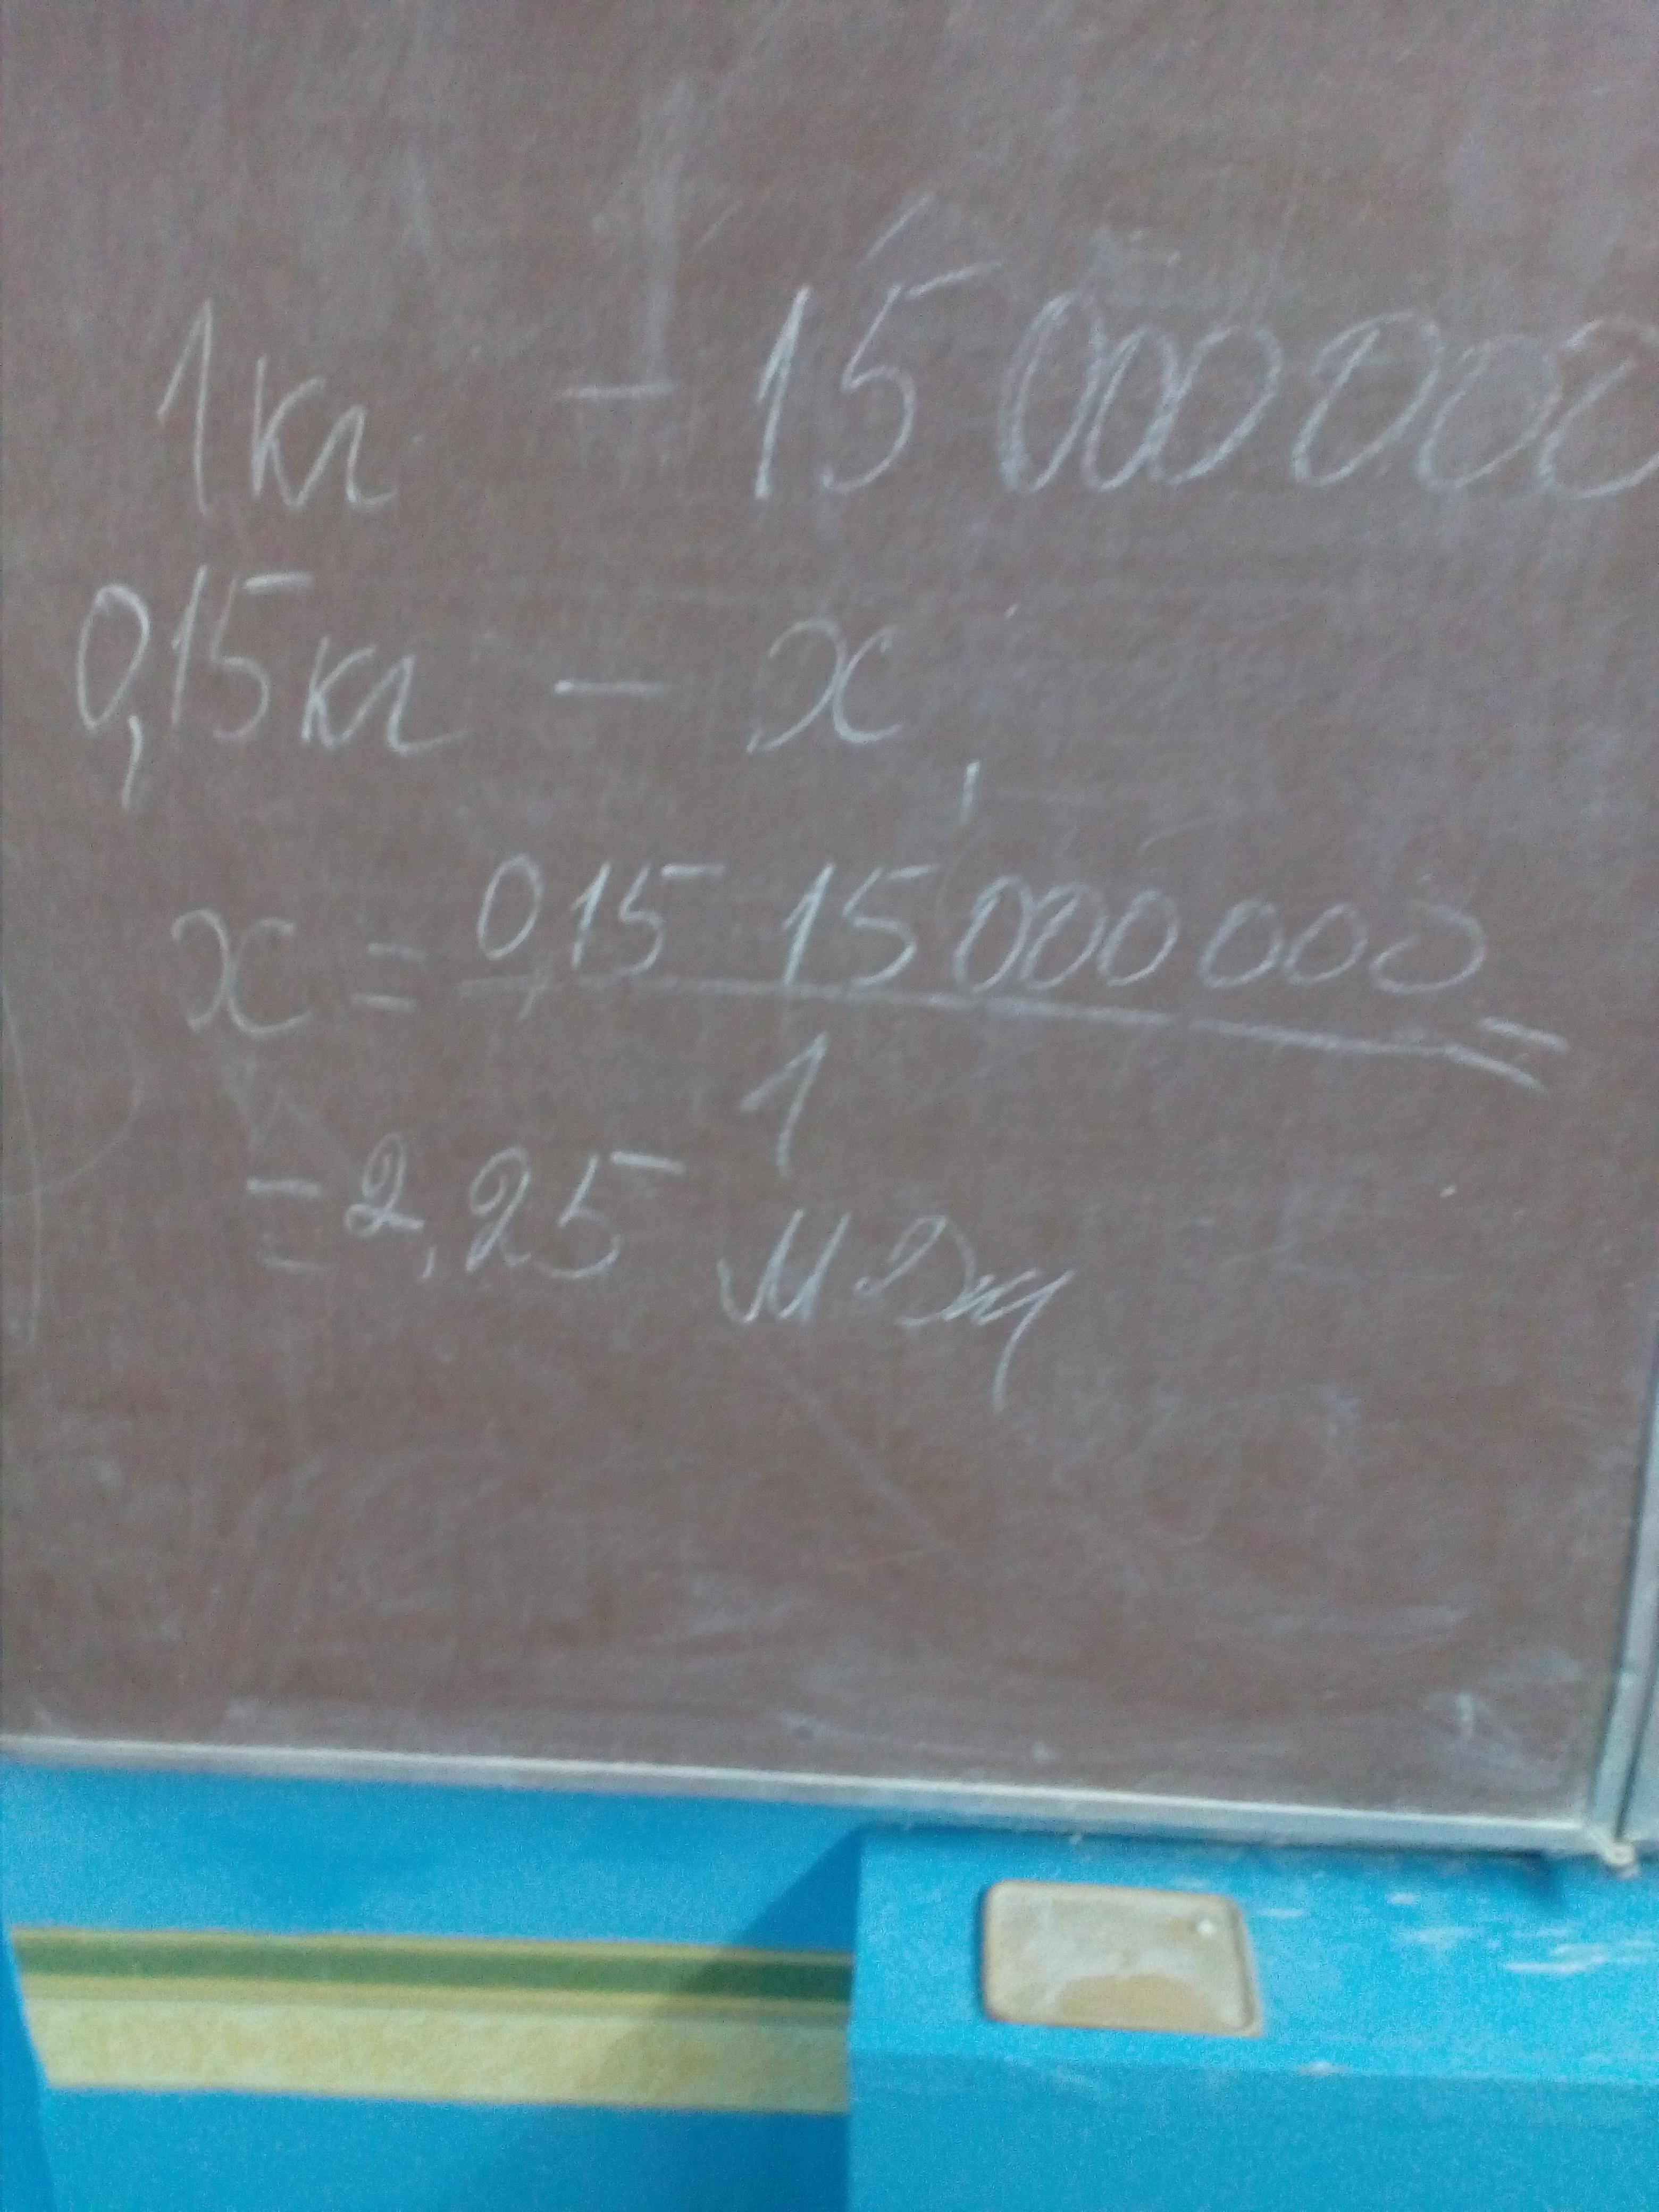 1кг - 15 000 000
0,15кг - x
x = 0,15 15 000 000 =
1
= 2,25 МДж